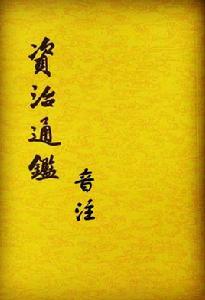 資治通鑑
音注